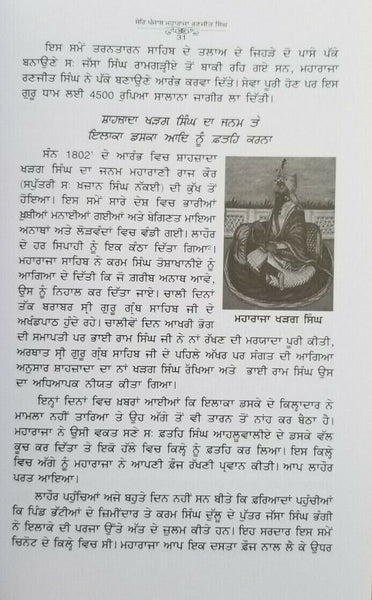 ਸ਼ੇਰਿ ਪੰਜਾਬ ਮਹਾਰਾਜਾ ਰਣਜੀਤ ਸਿੰਘ
31
ਇਸ ਸਮੇਂ ਤਰਨਤਾਰਨ ਸਾਹਿਬ ਦੇ ਤਲਾਅ ਦੇ ਜਿਹੜੇ ਦੋ ਪਾਸੇ ਪੱਕੇ
ਬਨਾਉਣੇ ਸ: ਜੱਸਾ ਸਿੰਘ ਰਾਮਗੜੀਏ ਤੋਂ ਬਾਕੀ ਰਹਿ ਗਏ ਸਨ, ਮਹਾਰਾਜਾ
ਰਣਜੀਤ ਸਿੰਘ ਨੇ ਪੱਕੇ ਬਣਾਉਣੇ ਆਰੰਭ ਕਰਵਾ ਦਿੱਤੇ। ਸੇਵਾ ਪੂਰੀ ਹੋਣ ਪਰ ਇਸ
ਗੁਰੂ ਧਾਮ ਲਈ 4500 ਰੁਪਿਆ ਸਾਲਾਨਾ ਜਾਗੀਰ ਲਾ ਦਿੱਤੀ।
ਸ਼ਾਹਜ਼ਾਦਾ ਖੜਗ ਸਿੰਘ ਦਾ ਜਨਮ ਤੇ
ਇਲਾਕਾ ਡਸਕਾ ਆਦਿ ਨੂੰ ਫ਼ਤਹਿ ਕਰਨਾ
ਸੰਨ 1802' ਦੇ ਆਰੰਭ ਵਿਚ ਸ਼ਾਹਜ਼ਾਦਾ
ਖੜਗ ਸਿੰਘ ਦਾ ਜਨਮ ਮਹਾਰਾਣੀ ਰਾਜ ਕੌਰ
(ਸਪੁੱਤਰੀ ਸ: ਖ਼ਜ਼ਾਨ ਸਿੰਘ ਨੱਕਈ) ਦੀ ਕੁੱਖ ਤੋਂ
ਹੋਇਆ। ਇਸ ਸਮੇਂ ਸਾਰੇ ਦੇਸ਼ ਵਿਚ ਭਾਰੀਆਂ
ਖ਼ੁਸ਼ੀਆਂ ਮਨਾਈਆਂ ਗਈਆਂ ਅਤੇ ਬੇਗਿਣਤ ਮਾਇਆ
ਅਨਾਥਾਂ ਅਤੇ ਲੋੜਵੰਦਾਂ ਵਿਚ ਵੰਡੀ ਗਈ। ਲਾਹੌਰ
ਦੇ ਹਰ ਸਿਪਾਹੀ ਨੂੰ ਇਕ ਕੰਠਾ ਦਿੱਤਾ ਗਿਆ।
ਮਹਾਰਾਜਾ ਸਾਹਿਬ ਨੇ ਕਰਮ ਸਿੰਘ ਤੋਸ਼ਾਖਾਨੀਏ ਨੂੰ
ਆਗਿਆ ਦੇ ਦਿੱਤੀ ਕਿ ਜੋ ਗਰੀਬ ਅਨਾਥ ਆਵੇ,
ਉਸ ਨੂੰ ਨਿਹਾਲ ਕਰ ਦਿੱਤਾ ਜਾਏ। ਚਾਲੀ ਦਿਨਾਂ
ਤੱਕ ਬਰਾਬਰ ਸ੍ਰੀ ਗੁਰੂ ਗ੍ਰੰਥ ਸਾਹਿਬ ਜੀ ਦੇ
ਅਖੰਡਪਾਠ ਹੁੰਦੇ ਰਹੇ। ਚਾਲੀਵੇਂ ਦਿਨ ਆਖਰੀ ਭੋਗ
ਮਹਾਰਾਜਾ ਖੜਗ ਸਿੰਘ
ਦੀ ਸਮਾਪਤੀ ਪਰ ਭਾਈ ਰਾਮ ਸਿੰਘ ਜੀ ਨੇ ਨਾਂ ਰੱਖਣ ਦੀ ਮਰਯਾਦਾ ਪੂਰੀ ਕੀਤੀ,
ਅਰਥਾਤ ਸ੍ਰੀ ਗੁਰੂ ਗ੍ਰੰਥ ਸਾਹਿਬ ਜੀ ਦੇ ਪਹਿਲੇ ਅੱਖਰ ਪਰ ਸੰਗਤ ਦੀ ਆਗਿਆ
ਅਨੁਸਾਰ ਸ਼ਾਹਜ਼ਾਦਾ ਦਾ ਨਾਂ ਖੜਗ ਸਿੰਘ ਰੱਖਿਆ ਅਤੇ ਭਾਈ ਰਾਮ ਸਿੰਘ ਉਸ
ਦਾ ਅਧਿਆਪਕ ਨੀਯਤ ਕੀਤਾ ਗਿਆ।
ਇਨ੍ਹਾਂ ਦਿਨਾਂ ਵਿਚ ਖ਼ਬਰਾਂ ਆਈਆਂ ਕਿ ਇਲਾਕਾ ਡਸਕੇ ਦੇ ਕਿਲ੍ਹਾਦਾਰ ਨੇ
ਮਾਮਲਾ ਨਹੀਂ ਤਾਰਿਆ ਤੇ ਉਹ ਅੱਗੇ ਤੋਂ ਵੀ ਤਾਰਨ ਤੋਂ ਨਾਂਹ ਕਰ ਬੈਠਾ ਹੈ।
ਮਹਾਰਾਜਾ ਨੇ ਉਸੀ ਵਕਤ ਸਣੇ ਸ: ਫ਼ਤਹਿ ਸਿੰਘ ਆਹਲੂਵਾਲੀਏ ਦੇ ਡਸਕੇ ਵੱਲ
ਕੂਚ ਕਰ ਦਿੱਤਾ ਤੇ ਇਕੋ ਹੱਲੇ ਵਿਚ ਕਿਲ੍ਹੇ ਨੂੰ ਫ਼ਤਹਿ ਕਰ ਲਿਆ। ਇਸ ਕਿਲ੍ਹੇ
ਵਿਚ ਅੱਗੋਂ ਨੂੰ ਮਹਾਰਾਜਾ ਨੇ ਆਪਣੀ ਫ਼ੌਜ ਰੱਖਣੀ ਪ੍ਰਵਾਨ ਕੀਤੀ। ਆਪ ਲਾਹੌਰ
ਪਰਤ ਆਇਆ।
ਲਾਹੌਰ ਪਹੁੰਚਿਆਂ ਅਜੇ ਬਹੁਤੇ ਦਿਨ ਨਹੀਂ ਸਨ ਬੀਤੇ ਕਿ ਫ਼ਰਿਆਦਾਂ ਪਹੁੰਚੀਆਂ
ਕਿ ਪਿੰਡ ਭੱਟੀਆਂ ਦੇ ਜ਼ਿਮੀਂਦਾਰ ਤੇ ਕਰਮ ਸਿੰਘ ਦੁੱਲੂ ਦੇ ਪੁੱਤਰ ਜੱਸਾ ਸਿੰਘ ਭੰਗੀ
ਨੇ ਇਲਾਕੇ ਦੀ ਪਰਜਾ ਉੱਤੇ ਅੱਤ ਦੇ ਜ਼ੁਲਮ ਕੀਤੇ ਹਨ। ਇਹ ਸਰਦਾਰ ਇਸ ਸਮੇਂ
ਚਿਨੋਟ ਦੇ ਕਿਲ੍ਹੇ ਵਿਚ ਸੀ। ਮਹਾਰਾਜਾ ਆਪ ਇਕ ਦਸਤਾ ਫ਼ੌਜ ਨਾਲ ਲੈ ਕੇ ਉਧਰ